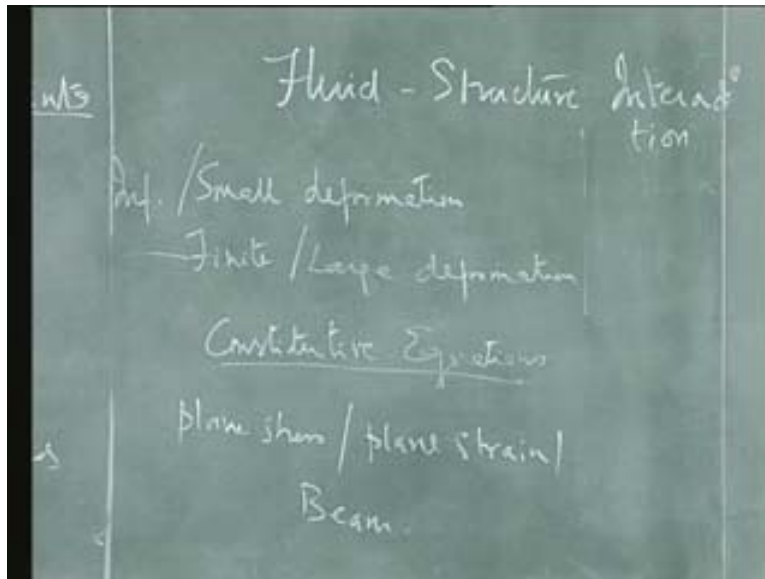 Fluid - Structure Interac
tion
Inf. / Small deformation
Finite / Large deformation
Constitutive Equations
plane stress / plane strain /
Beam.